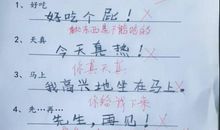 1、好吃
好吃个屁！
2、天真
今天真热！
你真天真
3、马上
我高兴地坐在马上。
你给我下来
4、先…再…
先生，再见！